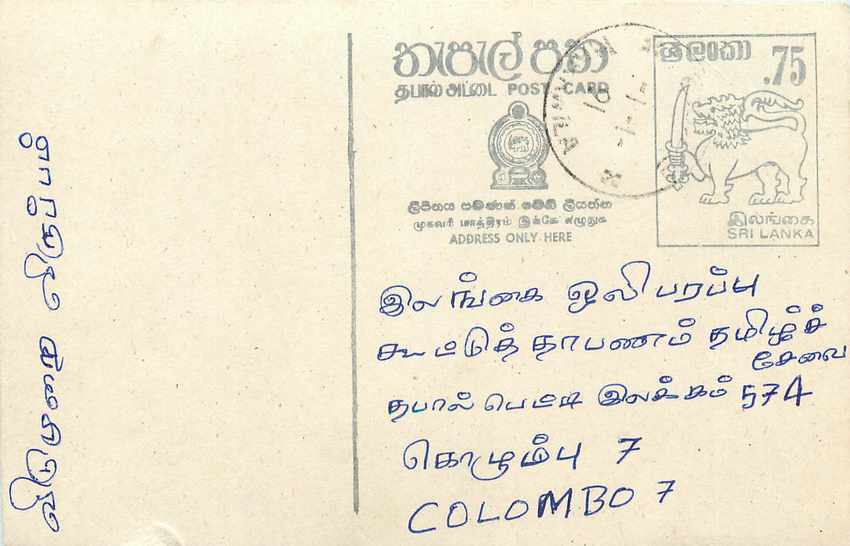 තැපැල් පත
தபால் அட்டை POST CARD
ලිපිනය පමණක් මෙහි ලියන්න
முகவரி மாத்திரம் இங்கே எழுதுக
ADDRESS ONLY HERE
ශ්‍රී ලංකා
.75
இலங்கை
SRI LANKA
இலங்கை ஒலிபரப்பு
கூட்டுத்தாபணம் தமிழ்ச்
சேவை
தபால் பெட்டி இலக்கம் 574
கொழும்பு 7
COLOMBO 7